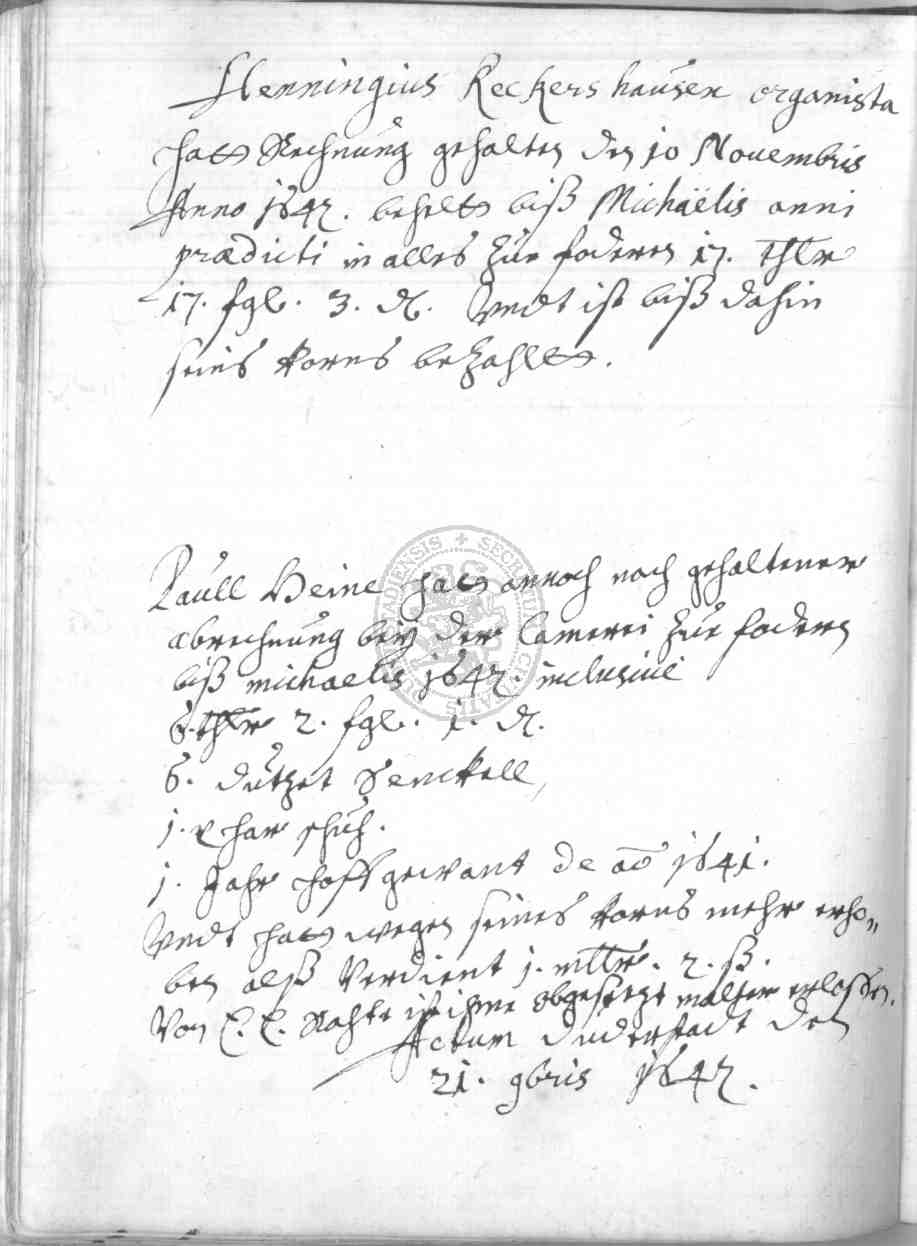 Henningius Reckershausen organista
hatt Rechnung gehalten den 10 Novembris
Anno 1642. behelt biß Michaëlis anni
prædicti in alles zue foderen 17. thlr
17. fgl. 3. d. Undt ist biß dahin
seins korns bezahlett.
Paull Heine hatt annoch nach gehaltener
abrechnung beÿ der Camerei zue fodern
biß michaelis 1642. inclusive
6. thlr 2. fgl. 1. d.
6. dutzet Senckell
1. phar schuh.
1. Jahr hoffgewant de aō 1641.
Undt hatt wegen seines korns mehr erho„
ben alß verdient 1. mltr. 2. ß.
Von E. E. Rahte ist ihme obgesetzt malter erlassen.
Actum Duderstadt den
21. 9bris 1642.
SECRETUM CIVITATIS